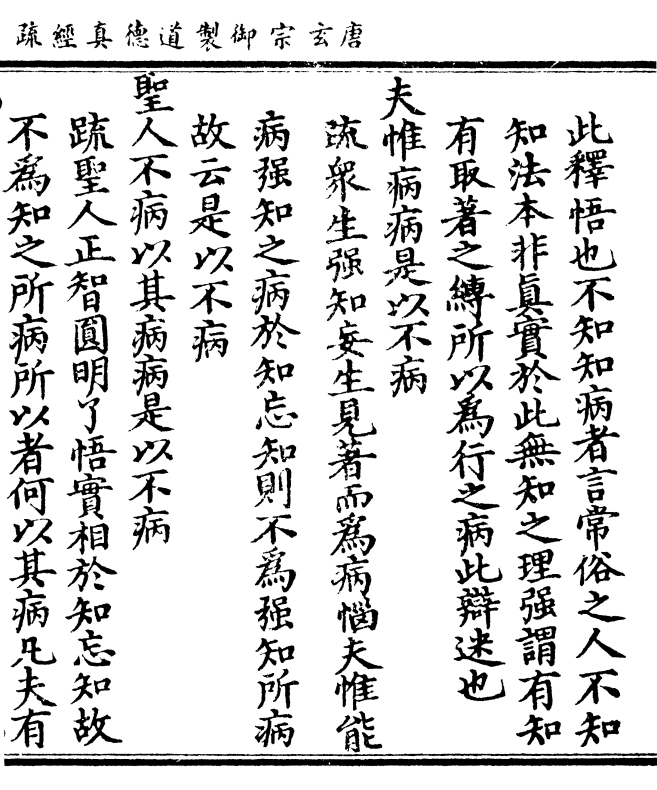 唐玄宗御製道德真經疏
此釋悟也不知知病者言常俗之人不知
知法本非真實於此無知之理强謂有知
有取著之縛所以為行之病此辯迷也
夫惟病病是以不病
疏衆生强知妄生見著而為病惱夫惟能
病强知之病於知忘知則不為强知所病
故云是以不病
聖人不病以其病病是以不病
疏聖人正智圓明了悟實相於知忘知故
不為知之所病所以者何以其病凡夫有